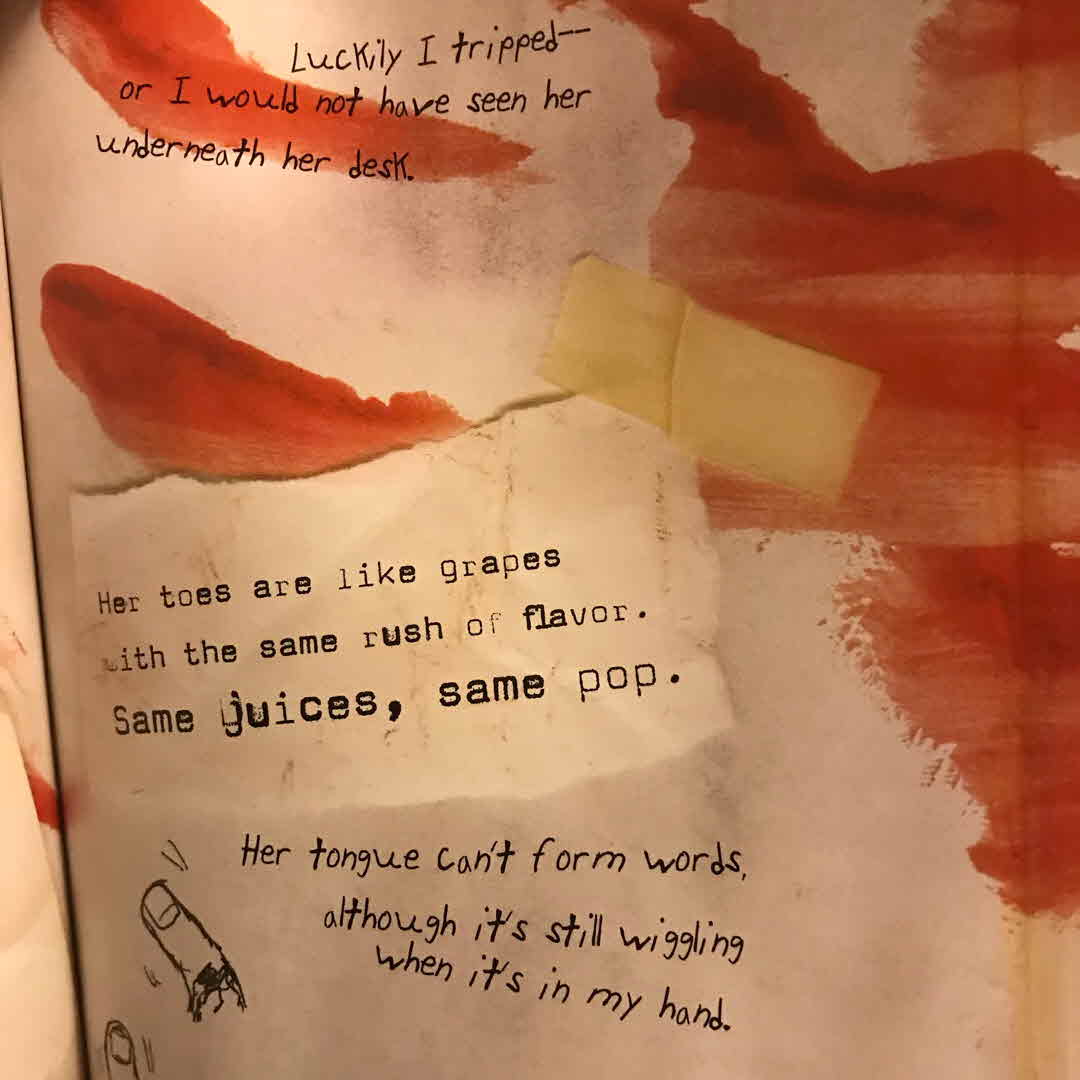 Luckily I tripped--
or I would not have seen her
underneath her desk.
Her toes are like grapes
with the same rush of flavor.
Same juices, same pop.
Her tongue can't form words,
although it's still wiggling
when it's in my hand.